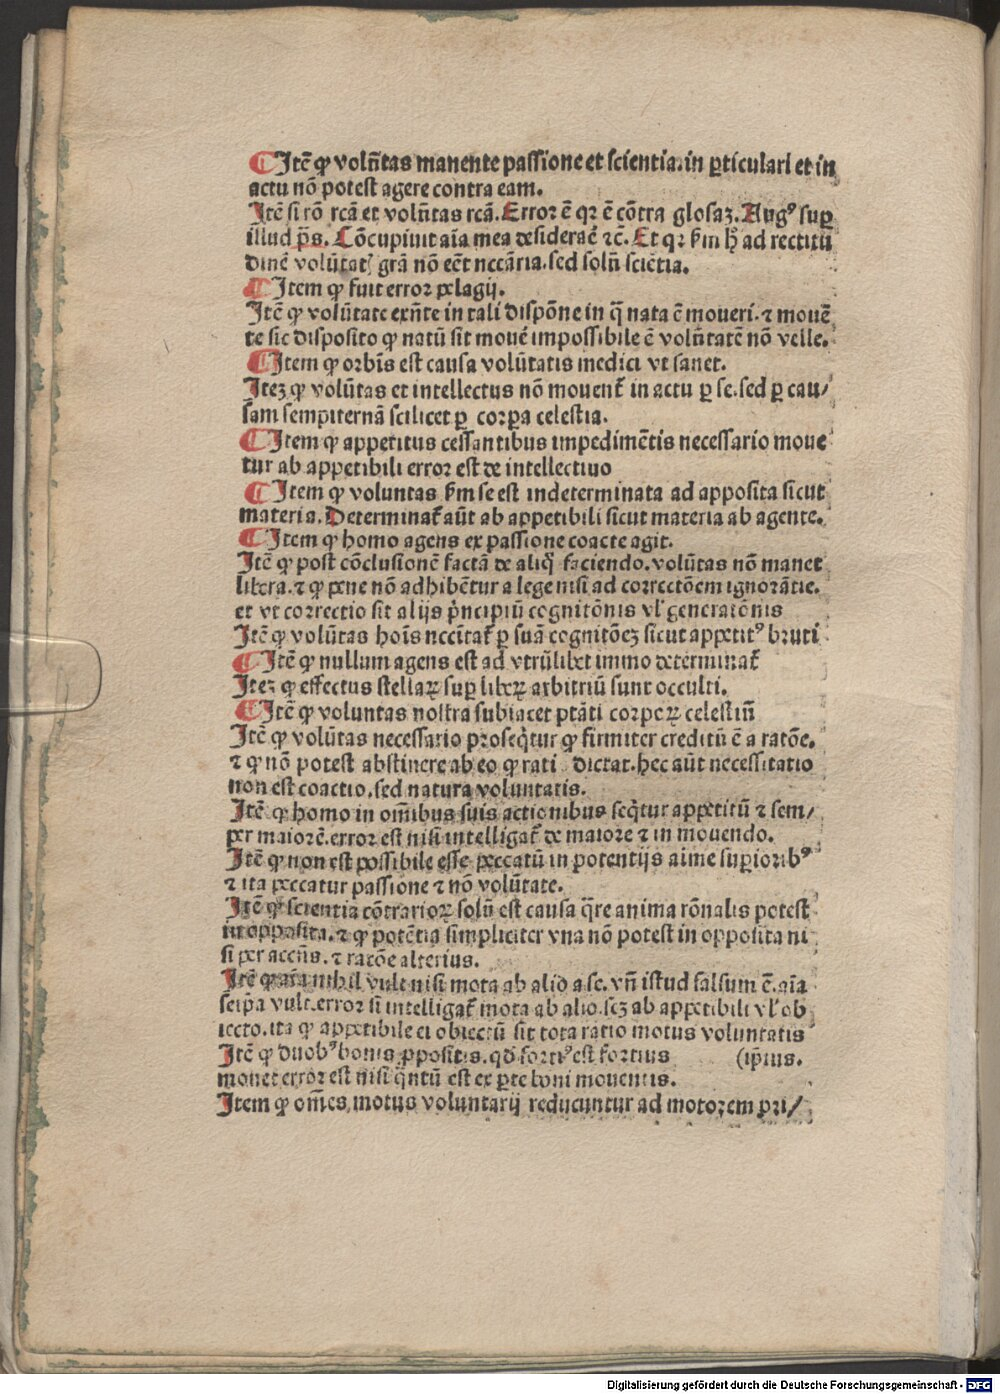 ¶ Itē ꝙ volūtas manente passione et scientia. in ꝑticulari et in
actu nō potest agere contra eam.
Itē si rō rcā et volūtas rcā. Error ē qꝛ ē cōtra glosaꝫ. Augꝰ suꝑ
illud p̄s. Cōcupiuit aīa mea desiderae᷑ ⁊c̄. Et qꝛ ẜm hͦ ad rectitu
dinē volūtatꝭ grā nō eēt necc̄aria. sed solū sciētia.
¶ Item ꝙ fuit error pelagij.
Itē ꝙ volūtate exn̄te in tali dispōne in q̄ nata ē moueri. ⁊ mouē
te sic disposito ꝙ natū sit moue᷑ impossibile ē volūtatē nō velle.
¶ Item ꝙ orbīs est causa volūtatis medici vt sanet.
Iteꝫ ꝙ volūtas et intellectus nō mouent᷑ in actu ꝑ se. sed ꝑ cau/
sam sempiternā scilicet ꝑ corꝑa celestia.
¶ Item ꝙ appetitus cessantibus impedimētis necessario moue
tur ab appetibili error est de intellectiuo
¶ Item ꝙ voluntas ẜm se est indeterminata ad apposita sicut
materia. Determinat᷑ aūt ab appetibili sicut materia ab agente.
¶ Item ꝙ homo agens ex passione coacte agit.
Itē ꝙ post cōclusionē factā de aliq̄ faciendo. volūtas nō manet
libera. ⁊ ꝙ pene nō adhibētur a lege nisi ad correctōem ignorātie.
et vt correctio sit alijs pͥncipiū cognitōnis vl̓ generatōnis
Itē ꝙ volūtas hoīs necc̄itat᷑ ꝑ suā cognitōeꝫ sicut appetitꝰ bruti
¶ Itē ꝙ nullum agens est ad vtrūlibet immo determinat᷑
Iteꝫ ꝙ effectus stellaꝝ suꝑ liberꝝ arbitriū sunt occulti.
¶ Itē ꝙ voluntas nostra subiacet ptāti corpoꝝ celestiū
Itē ꝙ volūtas necessario proseqͥtur ꝙ firmiter creditū ē a ratōe.
⁊ ꝙ nō potest abstinere ab eo ꝙ rati dictat. hec aūt necessitatio
non est coactio. sed natura voluntatis.
Itē ꝙ homo in om̄ibus suis actionibus seqͥtur appetitū ⁊ sem/
per maiorē. error est nisi intelligat᷑ de maiore ⁊ in mouendo.
Itē ꝙ non est possibile esse peccatū in potentijs aīme suꝑioribꝰ
⁊ ita peccatur passione ⁊ nō volūtate.
Itē ꝙ scientia cōtrarioꝝ solū est causa q̄re anima rōnalis potest
in opposita. ⁊ ꝙ potētia simpliciter vna nō potest in opposita ni
si per accn̄s. ⁊ ratōe alterius.
Itē ꝙ aīa nihil vult nisi mota ab alio a se. vn̄ istud falsum ē. aīa
seip̄a vult. error si intelligat᷑ mota ab alio. scꝫ ab appetibili vl̓ ob
iecto. ita ꝙ appetibile ei obiectū sit tota ratio motus voluntatis
Itē ꝙ duobꝰ bonis ꝓpositis. qd̄ fortiꝰ est fortius (ip̄ius.
mouet error est nisi q̄ntū est ex ꝑte boni mouentis.
Item ꝙ om̄es motus voluntarij reducuntur ad motorem pri/
Digitalisierung gefördert durch die Deutsche Forschungsgemeinschaft - DFG